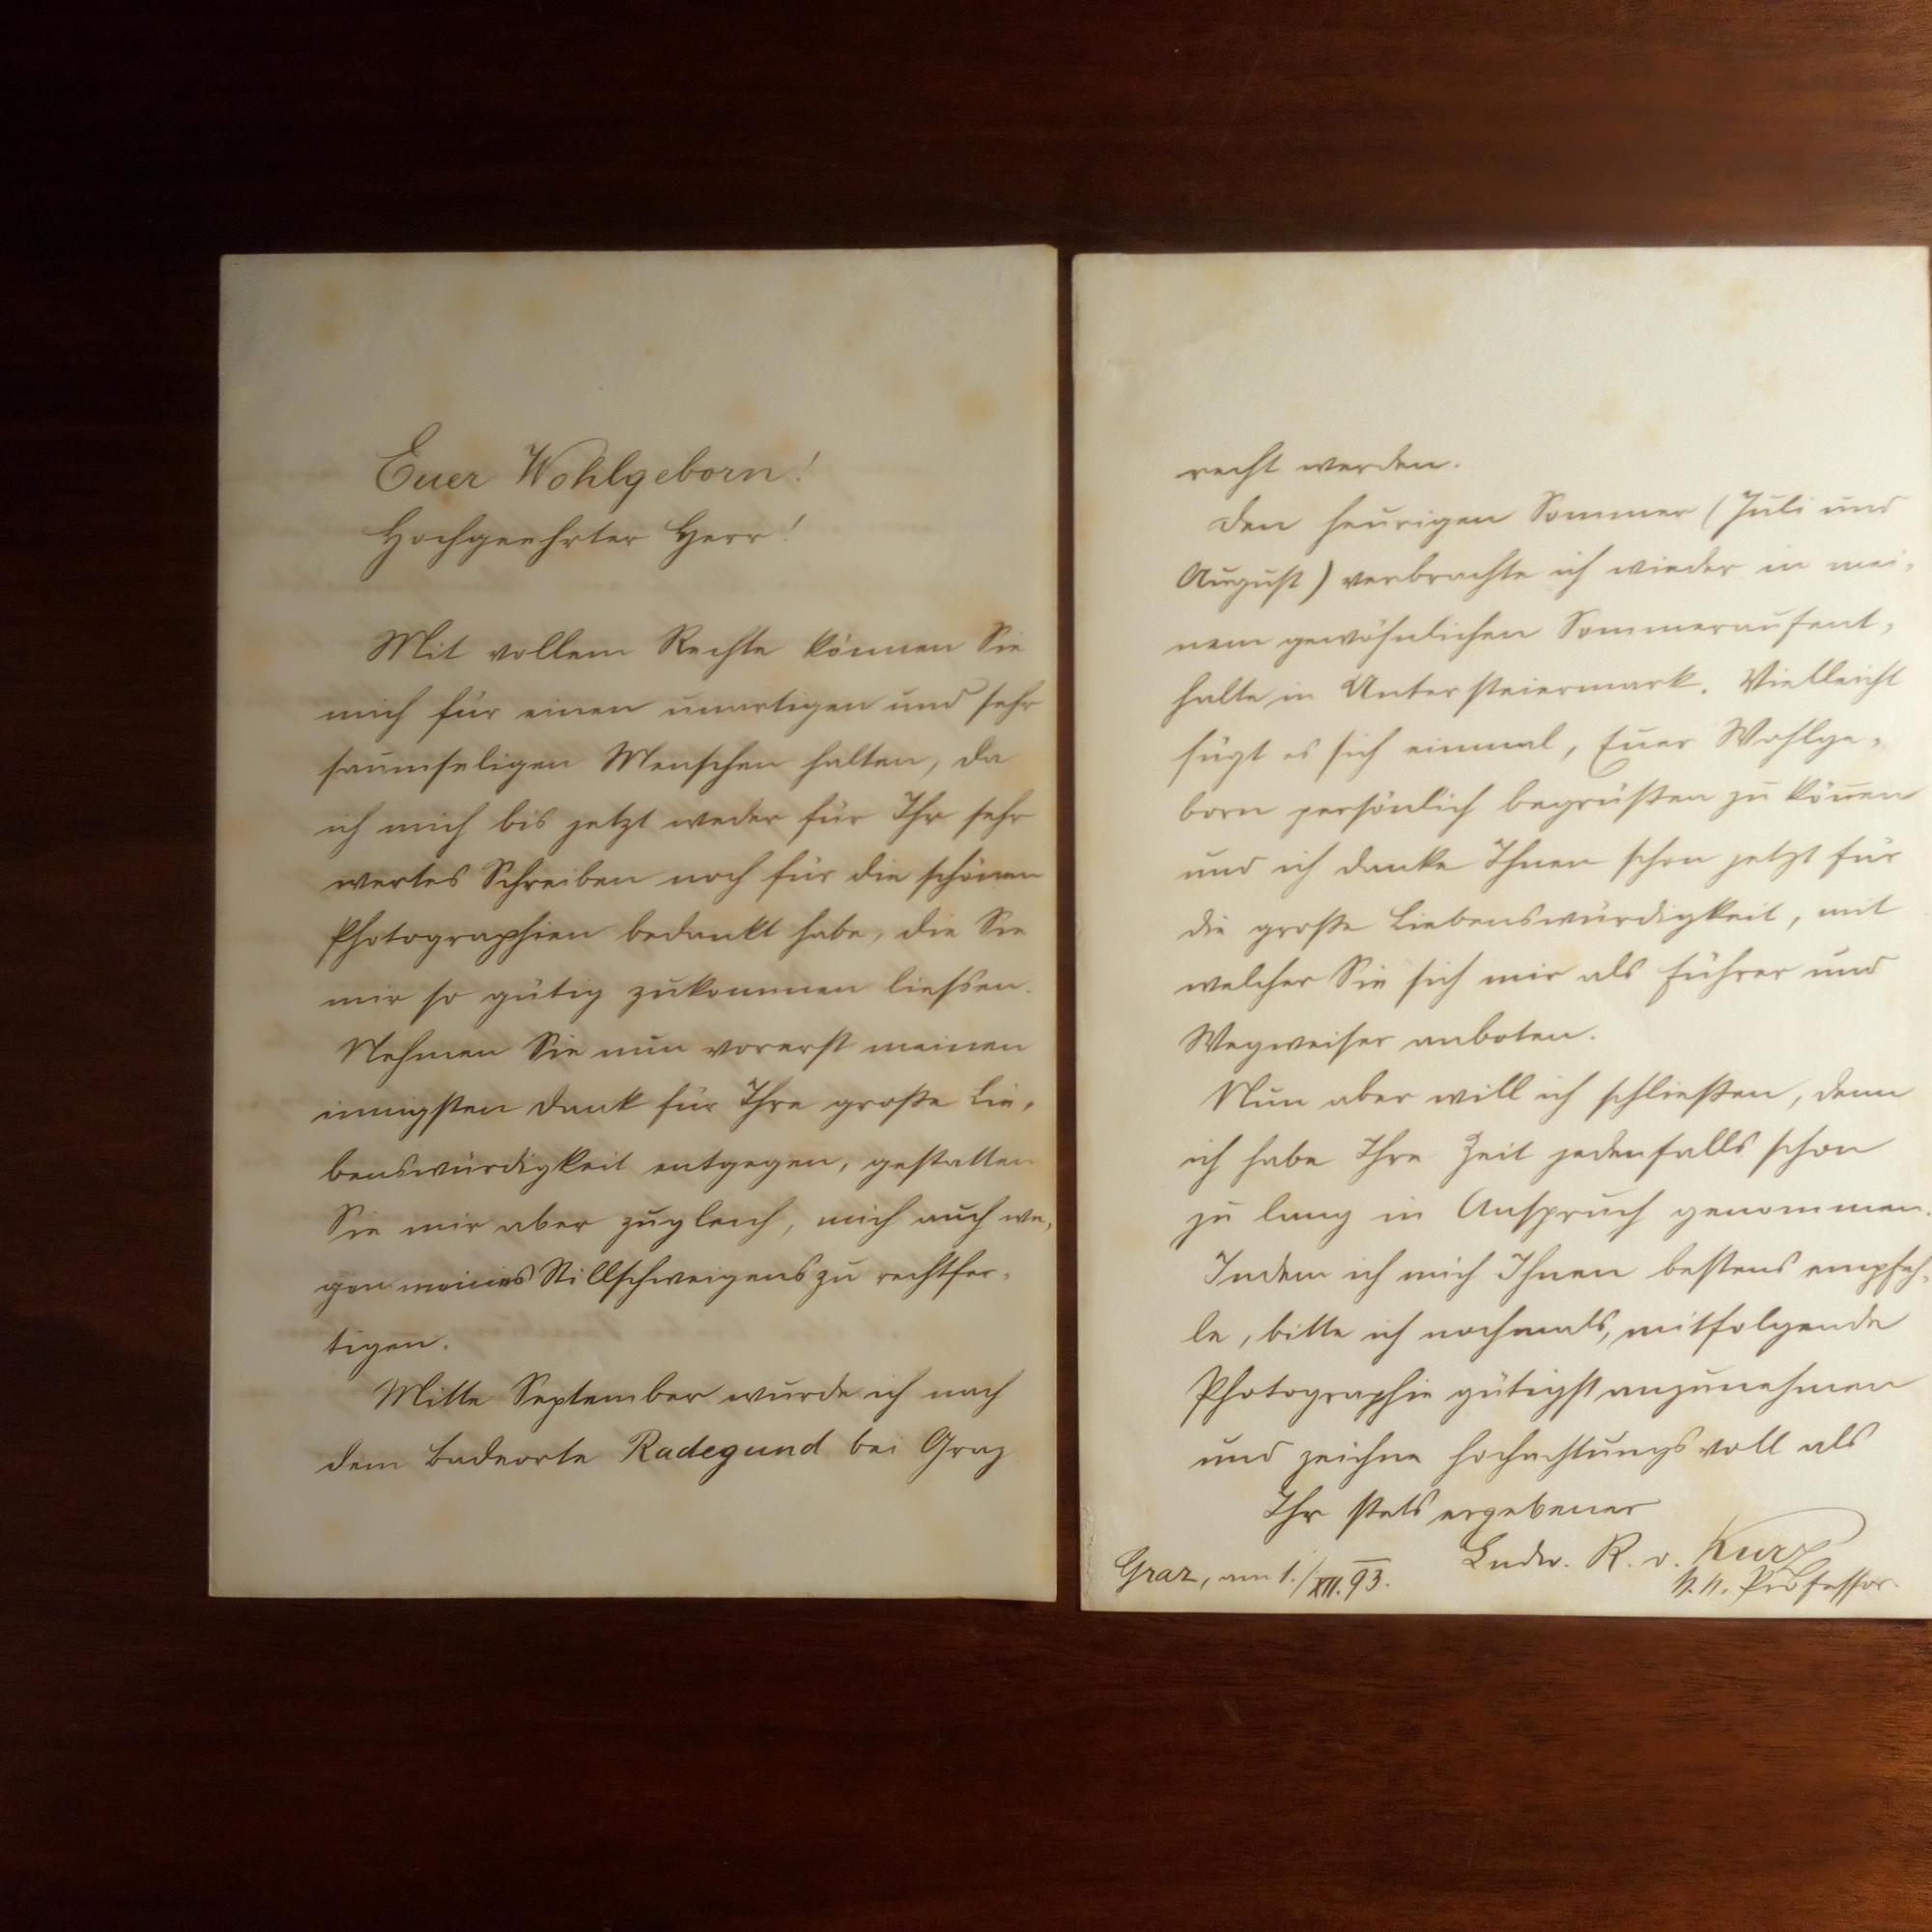 Euer Wohlgeborn!
Hochgeehrter Herr!
Mit vollem Rechte können Sie
mich für einen unartigen und sehr
saumseligen Menschen halten, da
ich mich bis jetzt weder für Ihr sehr
wertes Schreiben noch für die schönen
Photographien bedankt habe, die Sie
mir so gütig zukommen liessen.
Nehmen Sie nun vorerst meinen
innigsten Dank für Ihre große Lie-
benswürdigkeit entgegen, gestatten
Sie mir aber zugleich, mich auch we-
gen meines Stillschweigens zu rechtfer-
tigen.
Mitte September wurde ich nach
dem Badeorte Radegund bei Graz
recht werden.
Den heurigen Sommer (Juli und
August) verbrachte ich wieder in mei-
nem gewöhnlichen Sommeraufent-
halte in Untersteiermark. Vielleicht
fügt es sich einmal, Euer Wohlge-
born persönlich begrüßen zu können
und ich danke Ihnen schon jetzt für
die große Liebenswürdigkeit, mit
welcher Sie sich mir als Führer und
Wegweiser anboten.
Nun aber will ich schließen, denn
ich habe Ihre Zeit jedenfalls schon
zu lang in Anspruch genommen.
Indem ich mich Ihnen bestens empfeh-
le, bitte ich nochmals, mitfolgende
Photographie gütigst anzunehmen
und zeichne hochachtungsvoll als
Ihr stets ergebener
Ludw. R. v. Kurz
Graz, am 1./XII. 93.
k. k. Professor.